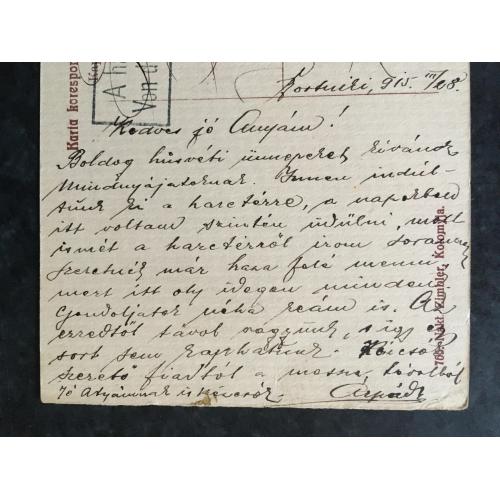 Karta korespon
A h
Von d
915. III/28.
Kedves jó Anyám!
Boldog húsvéti ünnepeket kívánok
mindnyájatoknak. Innen indul-
tunk ki a harctérre, a napokban
itt voltam szintén üdülni, most
ismét a harctérről írom soraimat
Szeretnék már haza felé menni
mert itt oly idegen minden.
Gondoljatok néha reám is. Az
ezredtől távol vagyunk, s így e
sort sem kaphatunk. Kicsók
szerető fiadtól a messze távolból
Jó Atyámnak is kézcsók. Árpád
768. Nakł. Zimbler, Kolomyja.